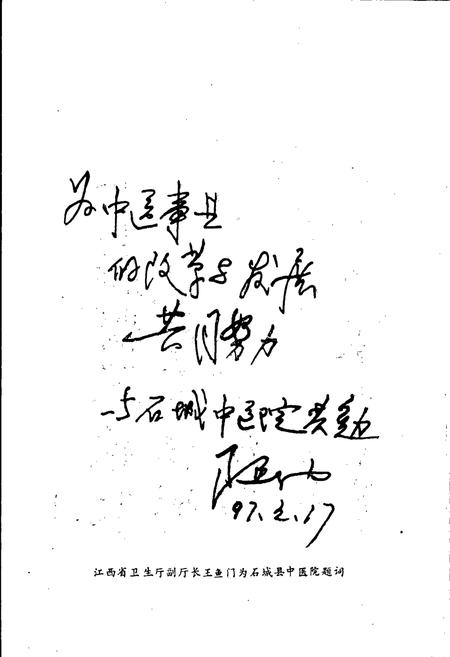 为中医事业
的改革与发展
共同努力
与石城中医院共勉
97.2.17
江西省卫生厅副厅长王鱼门为石城县中医院题词